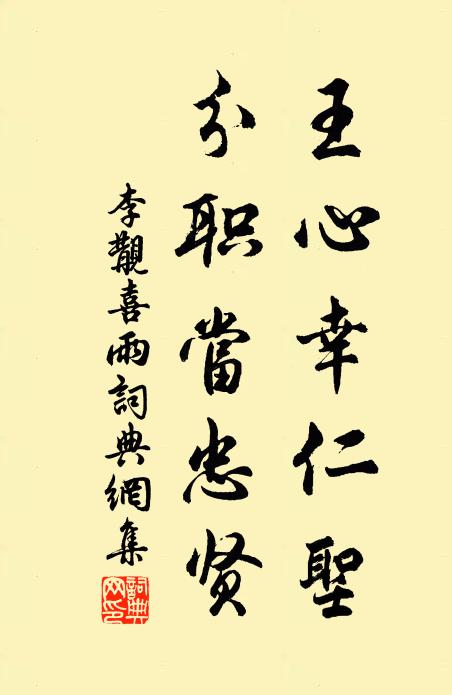 王心幸仁聖
分职當忠贤
李觀喜雨詞典網集
詞典网印